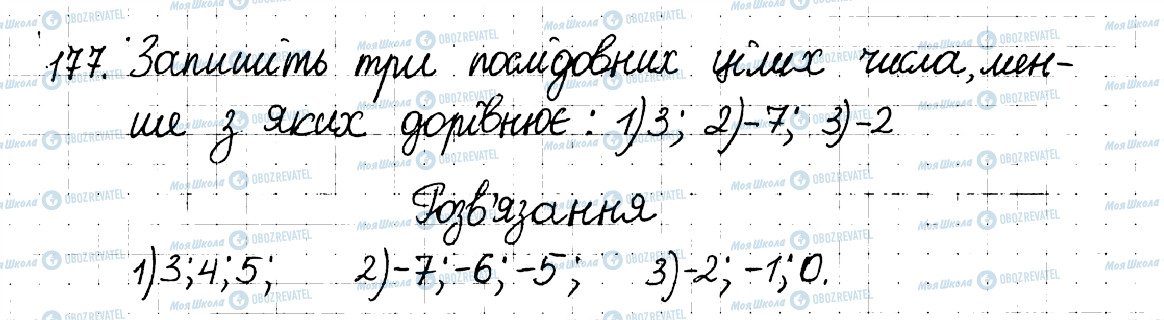 177. Запишіть три послідовних цілих числа, мен-
ше з яких дорівнює: 1) 3; 2) -7; 3) -2
Розв'язання
1) 3; 4; 5; 2) -7; -6; -5; 3) -2; -1; 0.